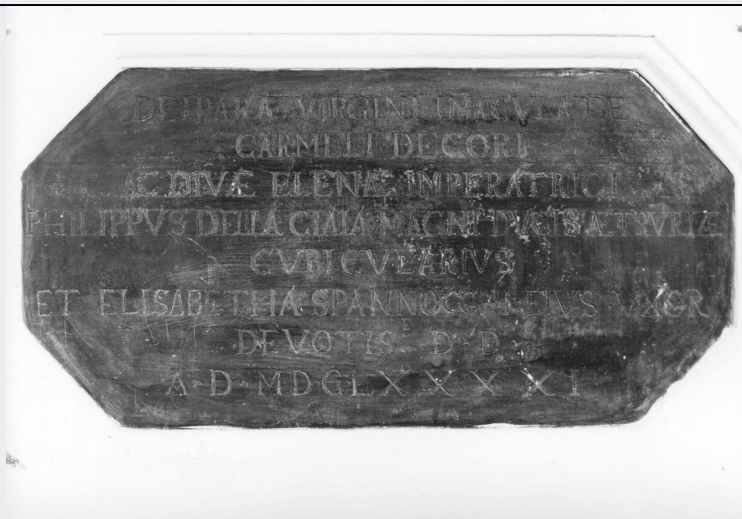 DEIPARÆ VIRGINI IMACVLATE
CARMELI DECORI
AC DIVÆ ELENÆ IMPERATRICI
PHILIPPVS DELLA CIAIA MAGNI DVCIS ÆTRVRIÆ
CVBICVLARIVS
ET ELISABETHA SPANNOCCHI EIVS VXOR
DEVOTIS D D
A D MDCLXXXXI